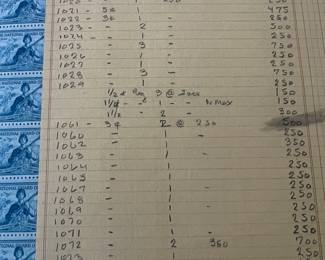 1021 - 3¢ 1 - 475
1022 - 3¢ 1 - 250
1023 - 2 - 500
1024 - 1 - 250
1025 - 3 - 750
1026 - 1 - 250
1027 - 1 - 250
1028 - 3 - 750
1029 - 1 - 250
1/2 ¢ 3 @ 150
1 - 150
1 1/2 - 2 - 300
1061 - 3¢ 2 @ 250 500
1060 1 - 250
1062 1 - 350
1063 1 - 250
1064 1 - 250
1065 - 1 250
1067 - 1 - 250
1068 - 1 250
1069 - 1 - 250
1070 - 1 250
1071 - 1 - 250
1072 2 350 700
1073 1 250
NATIONAL GUARD